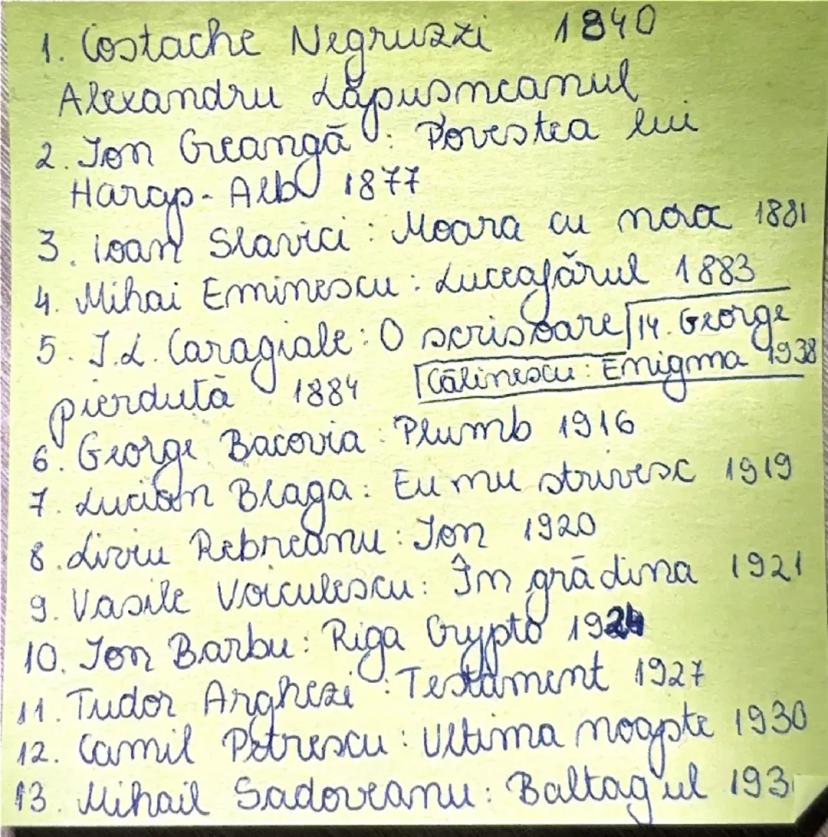 1. Costache Negruzzi 1840
Alexandru Lăpusneanul
2. Ion Creangă: Povestea lui
Harap-Alb 1877
3. Ioan Slavici: Moara cu noroc 1881
4. Mihai Eminescu: Luceafărul 1883
5. I.L. Caragiale: O scrisoare
pierdută 1884
14. George
Călinescu: Enigma 1938
6. George Bacovia: Plumb 1916
7. Lucian Blaga: Eu nu strivesc 1919
8. Liviu Rebreanu: Ion 1920
9. Vasile Voiculescu: În grădina 1921
10. Ion Barbu: Riga Crypto 1924
11. Tudor Arghezi: Testament 1927
12. Camil Petrescu: Ultima noapte 1930
13. Mihail Sadoveanu: Baltagul 193